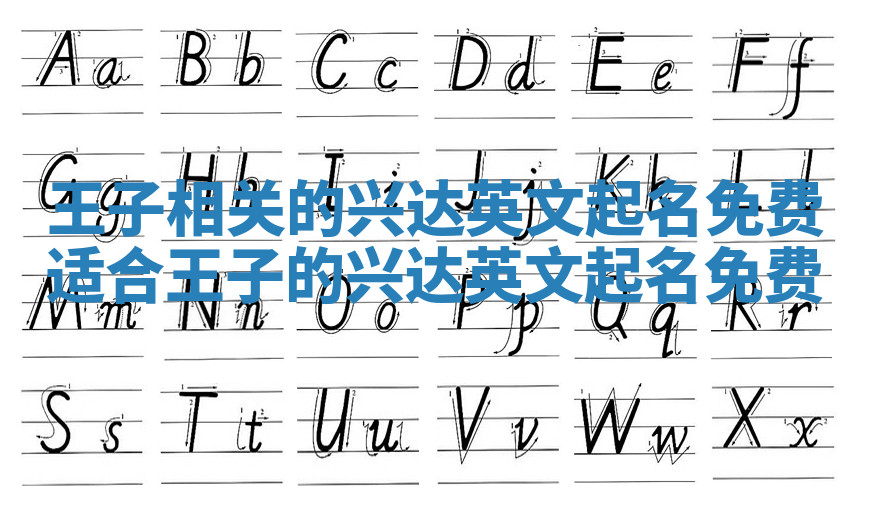 Aa Bb Cc Dd Ee Ff
Gg Hh Ii Jj Kk Ll
王子相关的兴达英文起名免费
适合王子的兴达英文起名免费
Mm Nn Oo Pp Qq Rr
Ss Tt Uu Vv Ww Xx